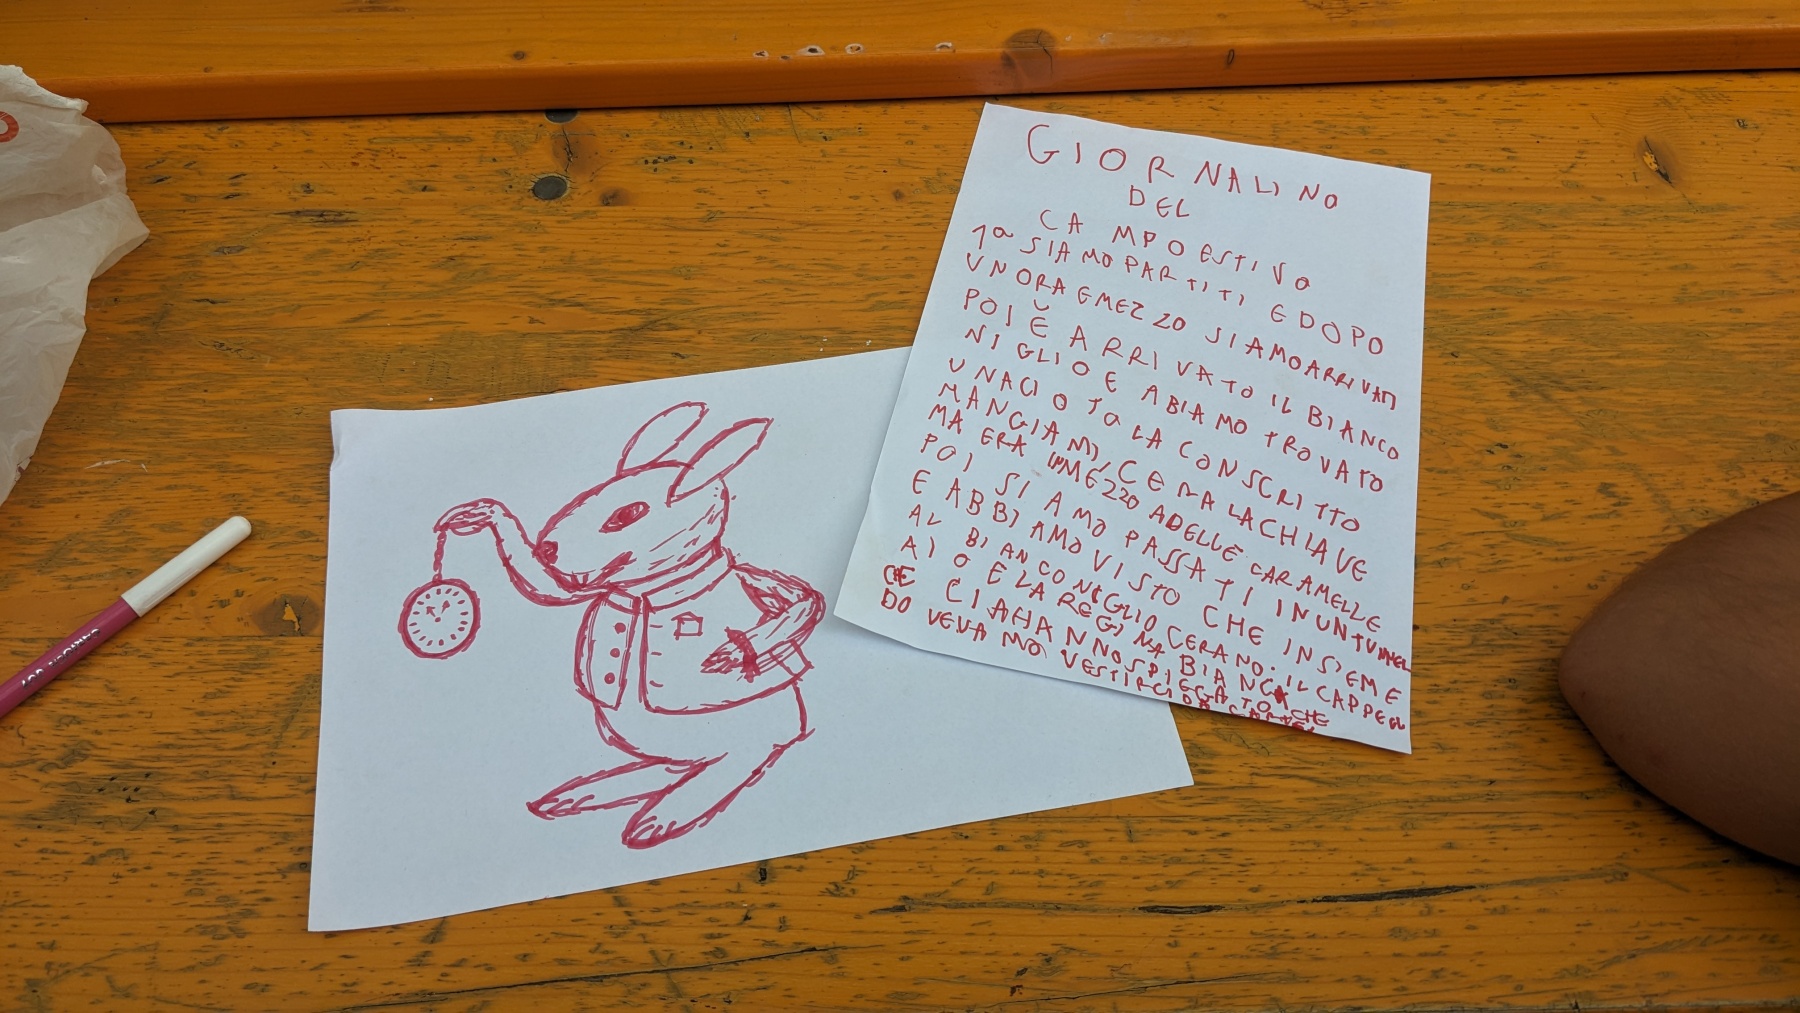 GIORNALINO
DEL
CAMPO ESTIVO
1a SIAMO PARTITI E DOPO
UNORA EMEZZO SIAMOARRIVATI
POI È ARRIVATO IL BIANCO
NIGLIO E ABIAMO TROVATO
UNACIOTOLA CONSCRITTO
MANGIAMI, CERA LACHIAVE
MA ERA INMEZZO ADELLE CARAMELLE
POI SIAMO PASSATI INUNTUNNEL
E ABBIAMO VISTO CHE INSIEME
AL BIANCONIGLIO CERANO: IL CAPPELL
AIO E LA REGINA BIANCA
CHE CIAHANNOSPIEGATO CHE
DOVEVAMO VESTIRCI DA CARTE
CARIOCA